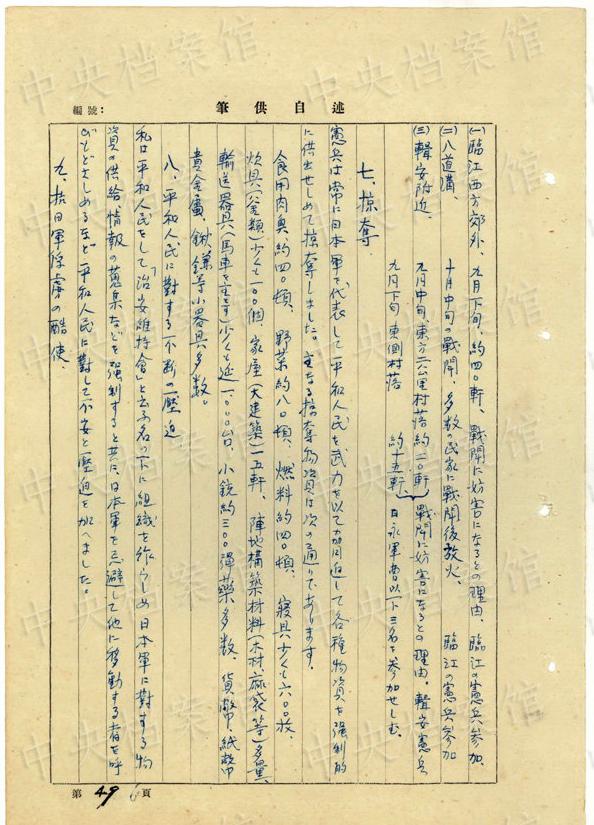 編號:
述自供筆
(一) 臨江西方郊外、九月下旬、約四〇軒、戰鬪に妨害になるとの理由、臨江の憲兵参加、
(二) 八道溝、十月中旬の戰鬪、多数の民家に戰鬪後放火、臨江の憲兵参加
(三) 輯安附近、九月中旬、東方二公里村落約二〇軒 戰鬪に妨害になるとの理由、輯安憲兵
九月下旬、東側村落 約十五軒 日永軍曹以下三名を参加せしむ。
七、掠奪、
憲兵は常に日本軍を代表して平和人民を武力を以て脅迫して各種物資を強制的
に供出せしめて掠奪しました。主なる掠奪物資は次の通りであります。
食用肉臭、約四〇頓、野菜約八〇頓、燃料約四〇頓、寝具少くも六〇〇枚、
炊具(釜類)少くも一〇〇個、家屋(大建築)一五軒、陣地構築材料(木材、麻袋等)多量、
輸送器具(馬車を主とす)少くも延一〇〇〇台、小銃約三〇〇彈藥多数、貨幣、紙幣
貴金屬、鍬鎌等小器具多数。
八、平和人民に對する不断の壓迫
私は平和人民をして「治安維持會」と云ふ名の下に組織を作らしめ日本軍に對する物
資の供給情報の蒐集などを強制すると共に日本軍を忌避して他に移動する者を呼
びもどさしめるなど平和人民に對して不安と壓迫を加へました。
九、抗日軍俘虜の酷使、
第 49 頁
中央档案馆